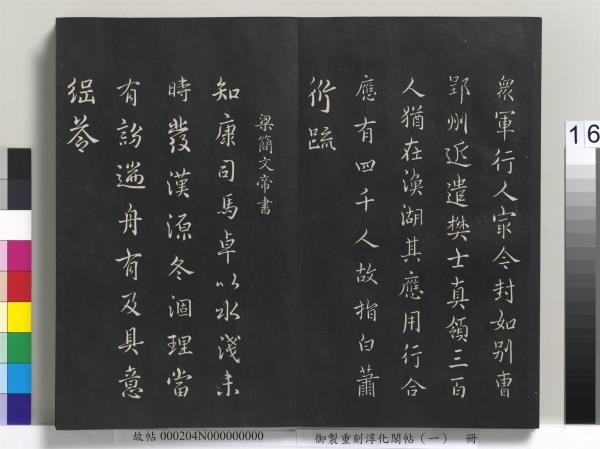 眾軍行人家令封如別曹
郢州近遣樊士真領三百
人猶在溳湖其應用行合
應有四千人故指白蕭
衍疏
梁簡文帝書
知康司馬卓以水淺未
時發漢源冬涸理當
有訥遄舟有及具意
綱答
故帖 000204N000000000
御製重刻淳化閣帖(一) 冊
16